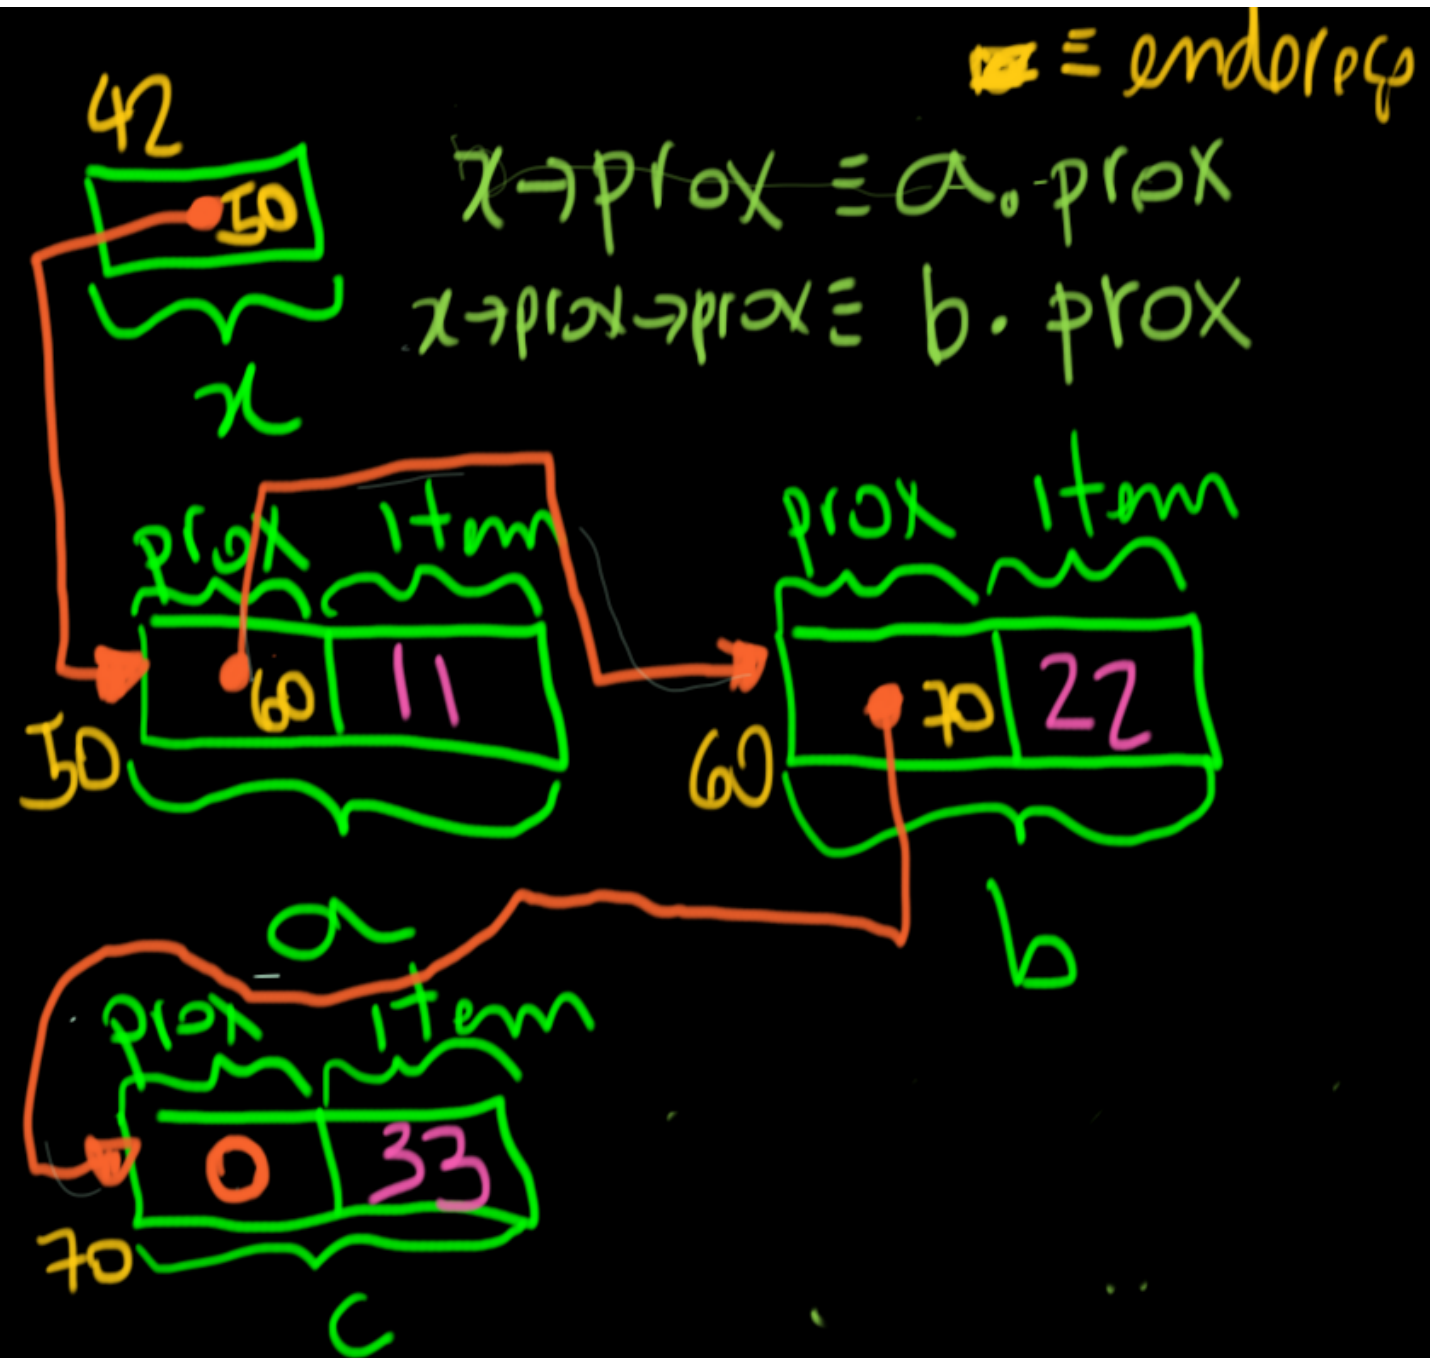 ≡ endereço
42
50
x→prox ≡ a.prox
x→prox→prox ≡ b.prox
x
prox item
60 11
50
a
prox item
70 22
60
b
prox item
0 33
70
c